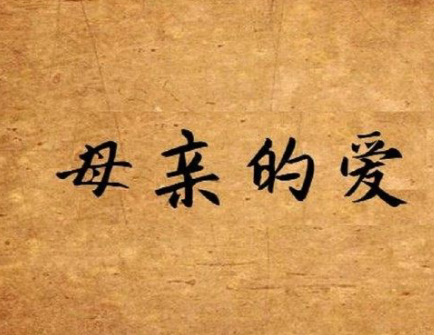 母亲的爱